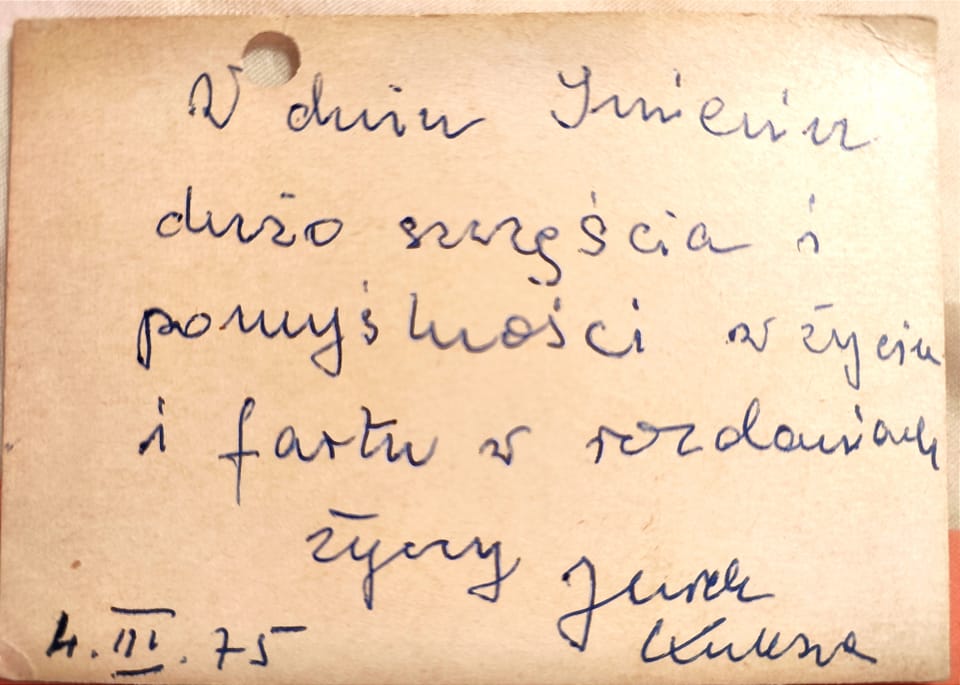 W dniu Imienin
dużo szczęścia i
pomyślności w życiu
i fartu w rozdaniach
życzy Jurek
4.III.75